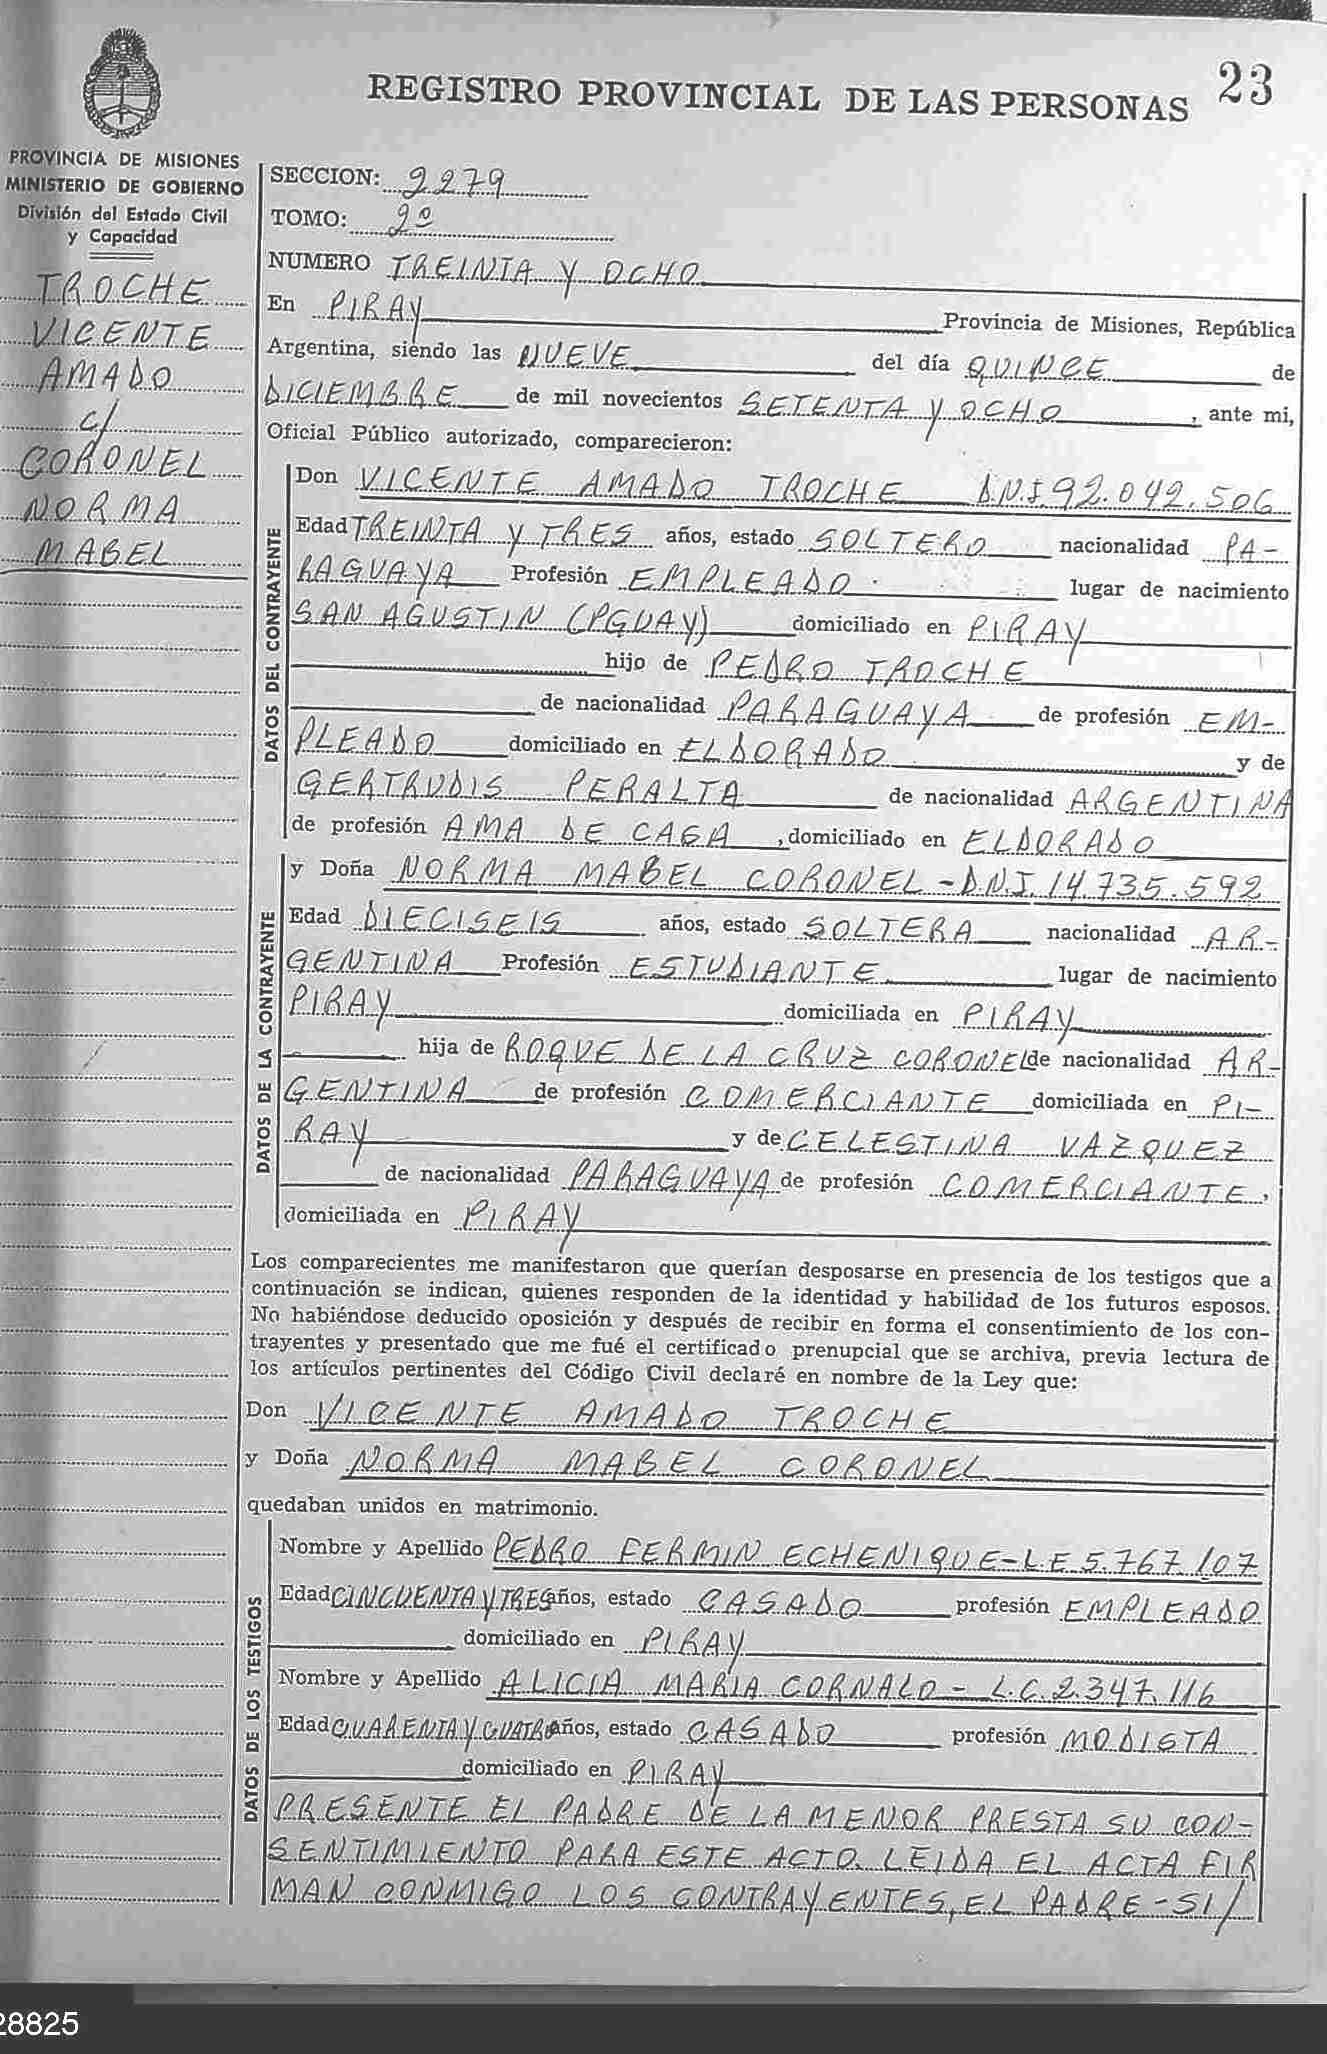 REGISTRO PROVINCIAL DE LAS PERSONAS
23
PROVINCIA DE MISIONES
MINISTERIO DE GOBIERNO
División del Estado Civil
y Capacidad
TROCHE
VICENTE
AMADO
c/
CORONEL
NORMA
MABEL
SECCION: 2279
TOMO: 2º
NUMERO TREINTA Y OCHO
En PIRAY Provincia de Misiones, República
Argentina, siendo las NUEVE del día QUINCE de
DICIEMBRE de mil novecientos SETENTA Y OCHO, ante mi,
Oficial Público autorizado, comparecieron:
DATOS DEL CONTRAYENTE
Don VICENTE AMADO TROCHE D.N.I. 92.042.506
Edad TREINTA Y TRES años, estado SOLTERO nacionalidad PA-
RAGUAYA Profesión EMPLEADO lugar de nacimiento
SAN AGUSTIN (PGUAY) domiciliado en PIRAY
hijo de PEDRO TROCHE
de nacionalidad PARAGUAYA de profesión EM-
PLEADO domiciliado en ELDORADO y de
GERTRUDIS PERALTA de nacionalidad ARGENTINA
de profesión AMA DE CASA, domiciliado en ELDORADO
DATOS DE LA CONTRAYENTE
y Doña NORMA MABEL CORONEL - D.N.I. 14.735.592
Edad DIECISEIS años, estado SOLTERA nacionalidad AR-
GENTINA Profesión ESTUDIANTE lugar de nacimiento
PIRAY domiciliada en PIRAY
hija de ROQUE DE LA CRUZ CORONEL de nacionalidad AR-
GENTINA de profesión COMERCIANTE domiciliada en PI-
RAY y de CELESTINA VAZQUEZ
de nacionalidad PARAGUAYA de profesión COMERCIANTE,
domiciliada en PIRAY
Los comparecientes me manifestaron que querían desposarse en presencia de los testigos que a
continuación se indican, quienes responden de la identidad y habilidad de los futuros esposos.
No habiéndose deducido oposición y después de recibir en forma el consentimiento de los con-
trayentes y presentado que me fué el certificado prenupcial que se archiva, previa lectura de
los artículos pertinentes del Código Civil declaré en nombre de la Ley que:
Don VICENTE AMADO TROCHE
y Doña NORMA MABEL CORONEL
quedaban unidos en matrimonio.
DATOS DE LOS TESTIGOS
Nombre y Apellido PEDRO FERMIN ECHENIQUE - L.E. 5.767.107
Edad CINCUENTA Y TRES años, estado CASADO profesión EMPLEADO
domiciliado en PIRAY
Nombre y Apellido ALICIA MARIA CORNALO - L.C. 2.347.116
Edad CUARENTA Y CUATRO años, estado CASADO profesión MODISTA
domiciliado en PIRAY
PRESENTE EL PADRE DE LA MENOR PRESTA SU CON-
SENTIMIENTO PARA ESTE ACTO. LEIDA EL ACTA FIR
MAN CONMIGO LOS CONTRAYENTES, EL PADRE - SI/
28825